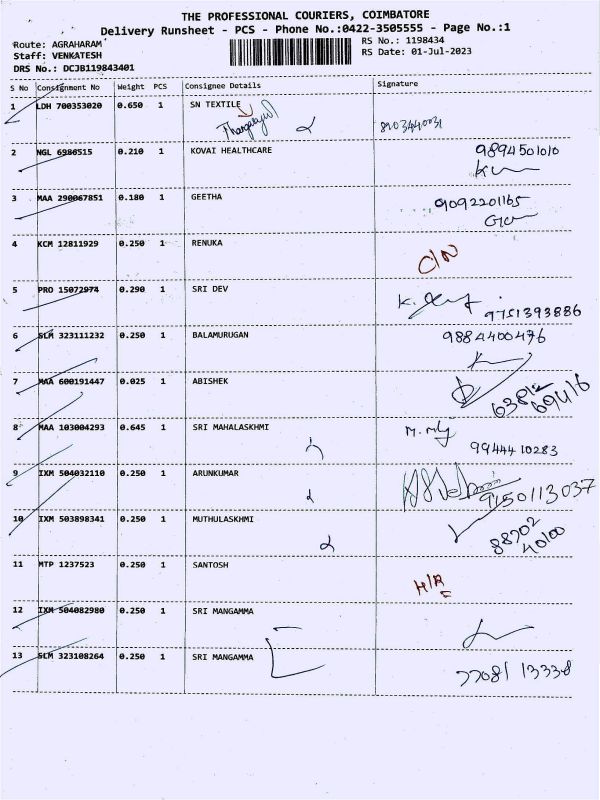 THE PROFESSIONAL COURIERS, COIMBATORE
Delivery Runsheet - PCS - Phone No.:0422-3505555 - Page No.:1
Route: AGRAHARAM
RS No.: 1198434
Staff: VENKATESH
RS Date: 01-Jul-2023
DRS No.: DCJB119843401
S No Consignment No Weight PCS Consignee Details Signature
1 LDH 700353020 0.650 1 SN TEXTILE
2 NGL 6986515 0.210 1 KOVAI HEALTHCARE 9894501010
3 MAA 290067851 0.180 1 GEETHA 9092201165
4 KCM 12811929 0.250 1 RENUKA C/N
5 PRO 15072974 0.290 1 SRI DEV 9751393886
6 SLM 323111232 0.250 1 BALAMURUGAN 9884400476
7 MAA 600191447 0.025 1 ABISHEK
63812
69416
8 MAA 103004293 0.645 1 SRI MAHALASKHMI 9944410283
9 IXM 504032110 0.250 1 ARUNKUMAR 9150113037
10 IXM 503898341 0.250 1 MUTHULASKHMI
88702
40100
11 MTP 1237523 0.250 1 SANTOSH
12 IXM 504082980 0.250 1 SRI MANGAMMA
13 SLM 323108264 0.250 1 SRI MANGAMMA 77081 13338